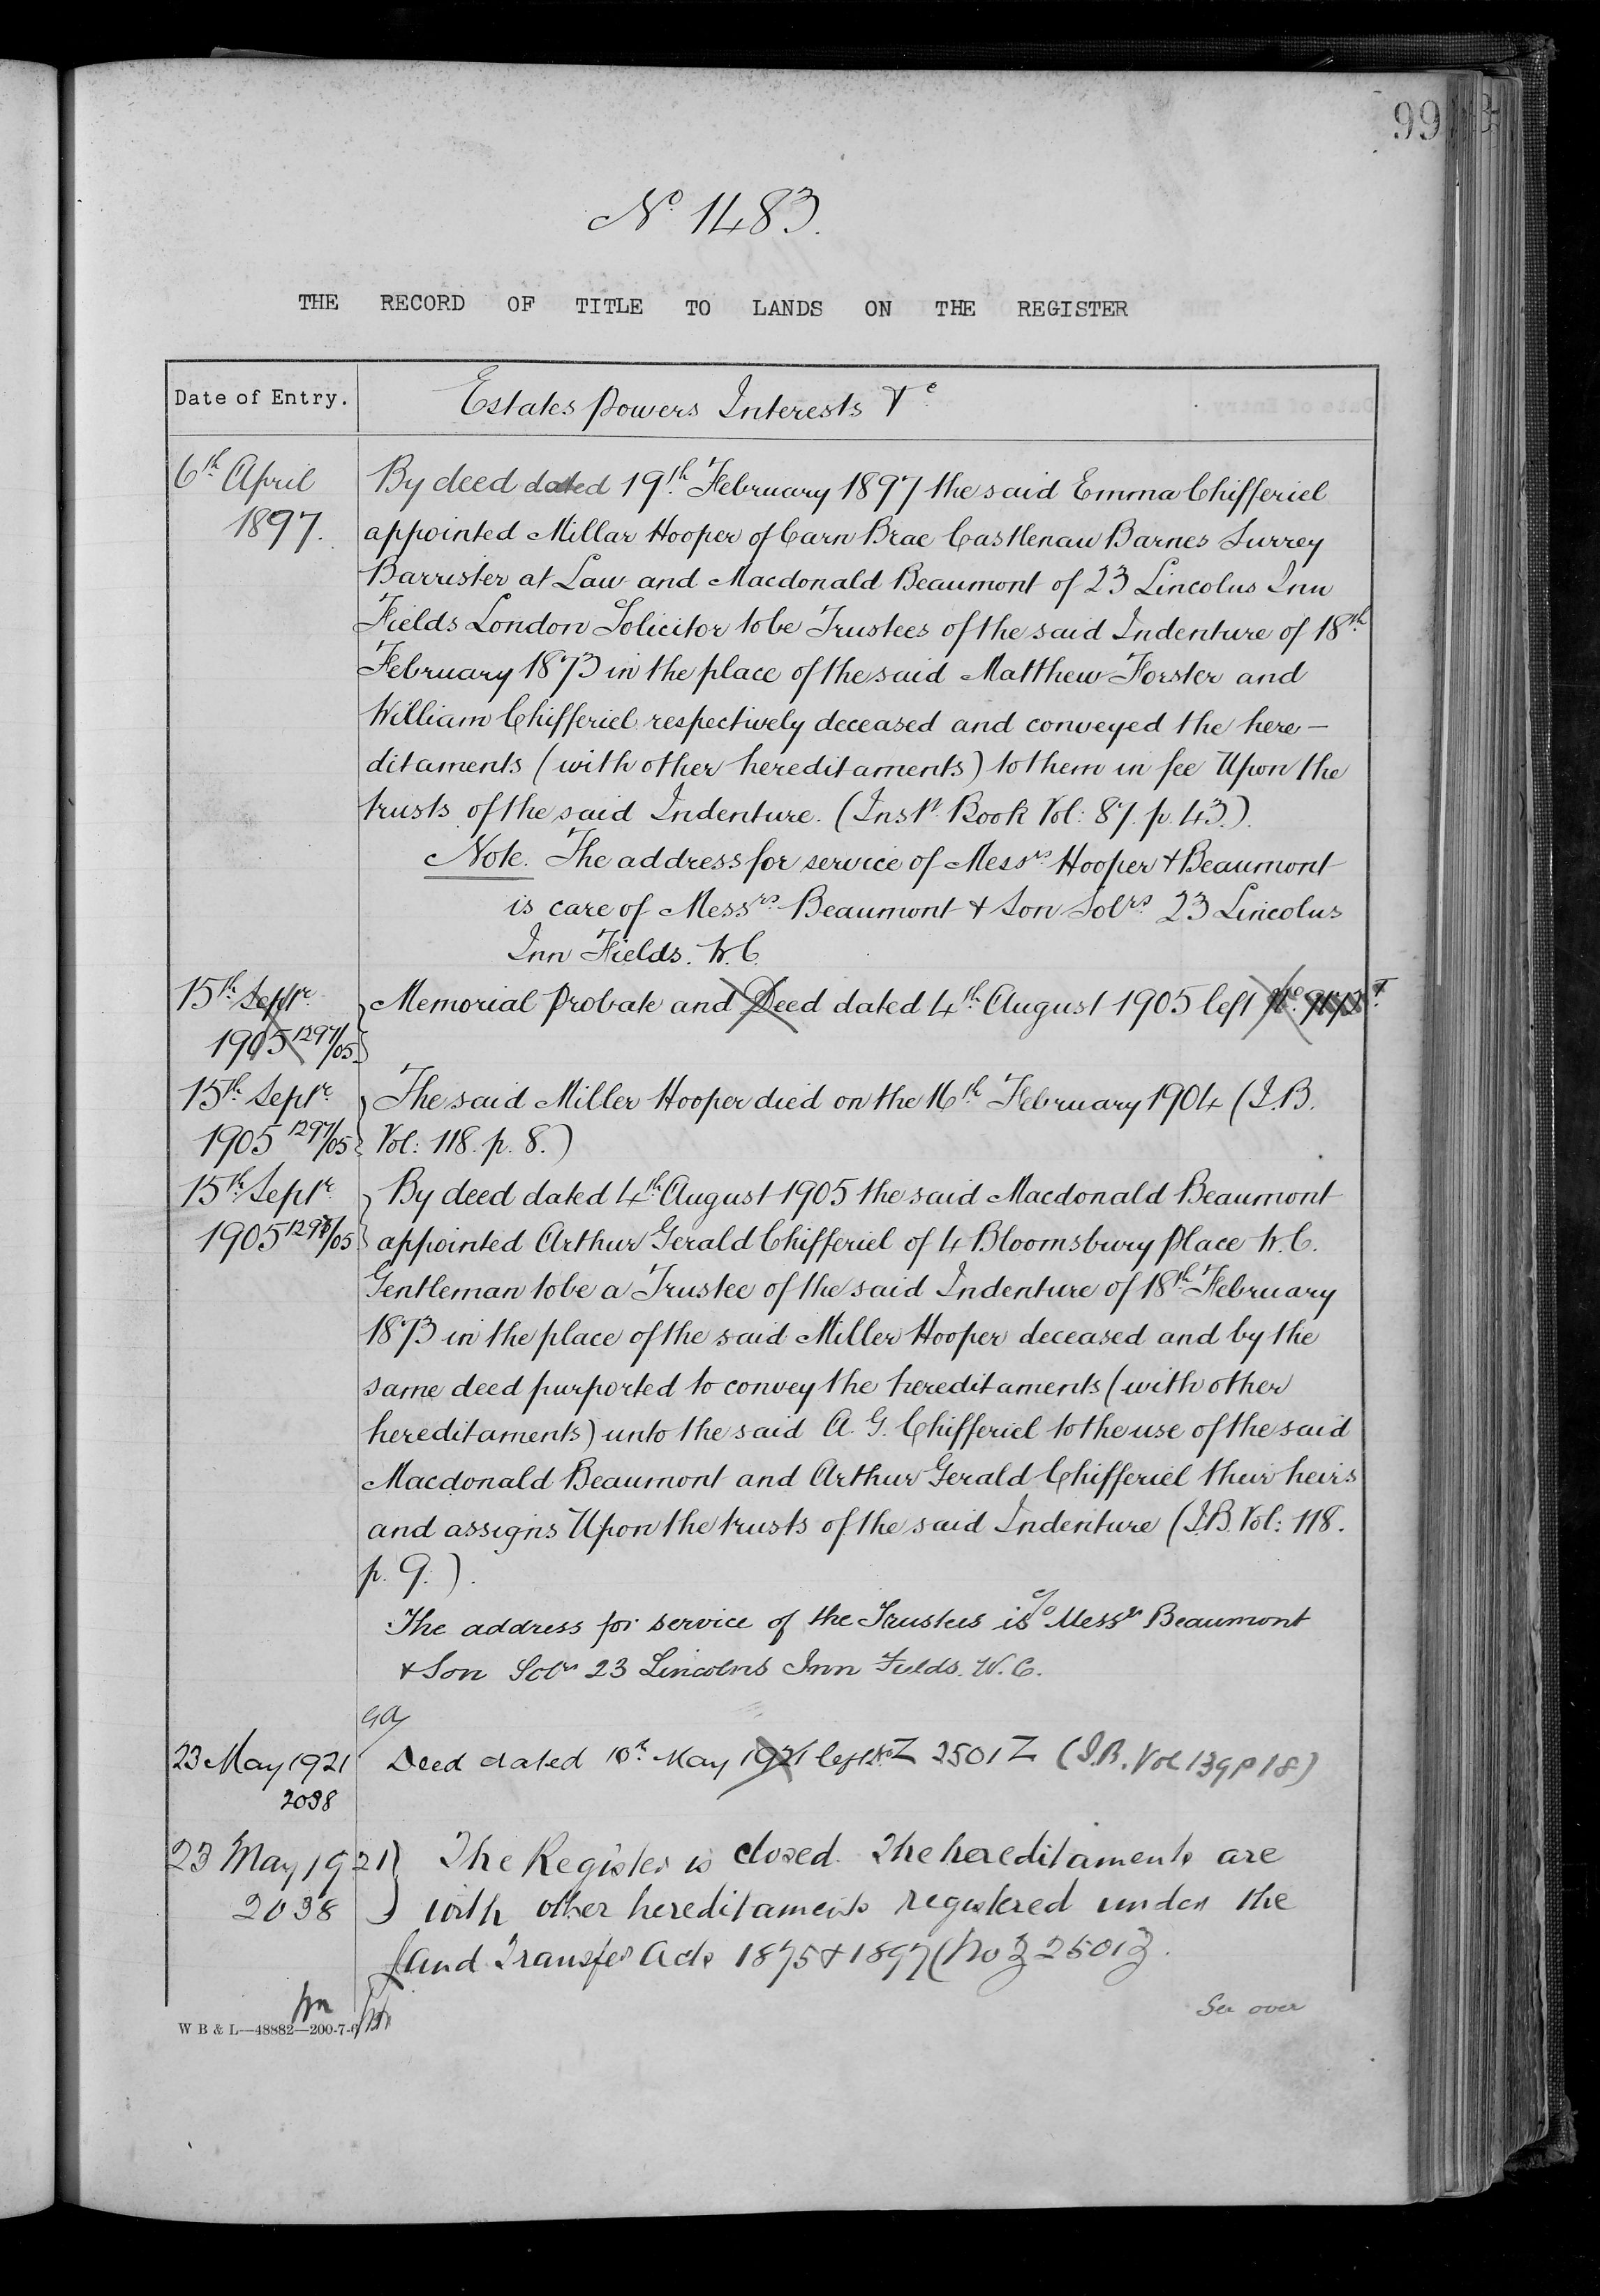 99
No 1483.
THE RECORD OF TITLE TO LANDS ON THE REGISTER
Date of Entry.
Estates Powers Interests &c
6th April
1897.
By deed dated 19th February 1897 the said Emma Chifferiel
appointed Millar Hooper of Carn Brae Castlenau Barnes Surrey
Barrister at Law and Macdonald Beaumont of 23 Lincolns Inn
Fields London Solicitor to be Trustees of the said Indenture of 18th
February 1873 in the place of the said Matthew Forster and
William Chifferiel respectively deceased and conveyed the here-
ditaments (with other hereditaments) to them in fee Upon the
trusts of the said Indenture. (Inst. Book Vol: 87. p. 43.).
Note. The address for service of Messrs Hooper & Beaumont
is care of Messrs Beaumont & Son Solrs 23 Lincolns
Inn Fields. W.C.
15th Septr
1905 1297/05
Memorial Probate and Deed dated 4th August 1905 left No
15th Septr
1905 1297/05
The said Miller Hooper died on the 16th February 1904 (I.B.
Vol: 118. p. 8.)
15th Septr
1905 1298/05
By deed dated 4th August 1905 the said Macdonald Beaumont
appointed Arthur Gerald Chifferiel of 4 Bloomsbury Place W.C.
Gentleman to be a Trustee of the said Indenture of 18th February
1873 in the place of the said Miller Hooper deceased and by the
same deed purported to convey the hereditaments (with other
hereditaments) unto the said A. G. Chifferiel to the use of the said
Macdonald Beaumont and Arthur Gerald Chifferiel their heirs
and assigns Upon the trusts of the said Indenture (I.B. Vol: 118.
p. 9.).
The address for service of the Trustees is c/o Messrs Beaumont
& Son Solrs 23 Lincolns Inn Fields. W.C.
23 May 1921
2038
Deed dated 10th May 1921 left No Z 2501 Z (I.B. Vol 139 p 18)
23 May 1921
2038
The Register is closed. The hereditaments are
with other hereditaments registered under the
Land Transfer Acts 1875 & 1897 (No Z 2501 Z.
See over
W B & L—48882—200-7-6